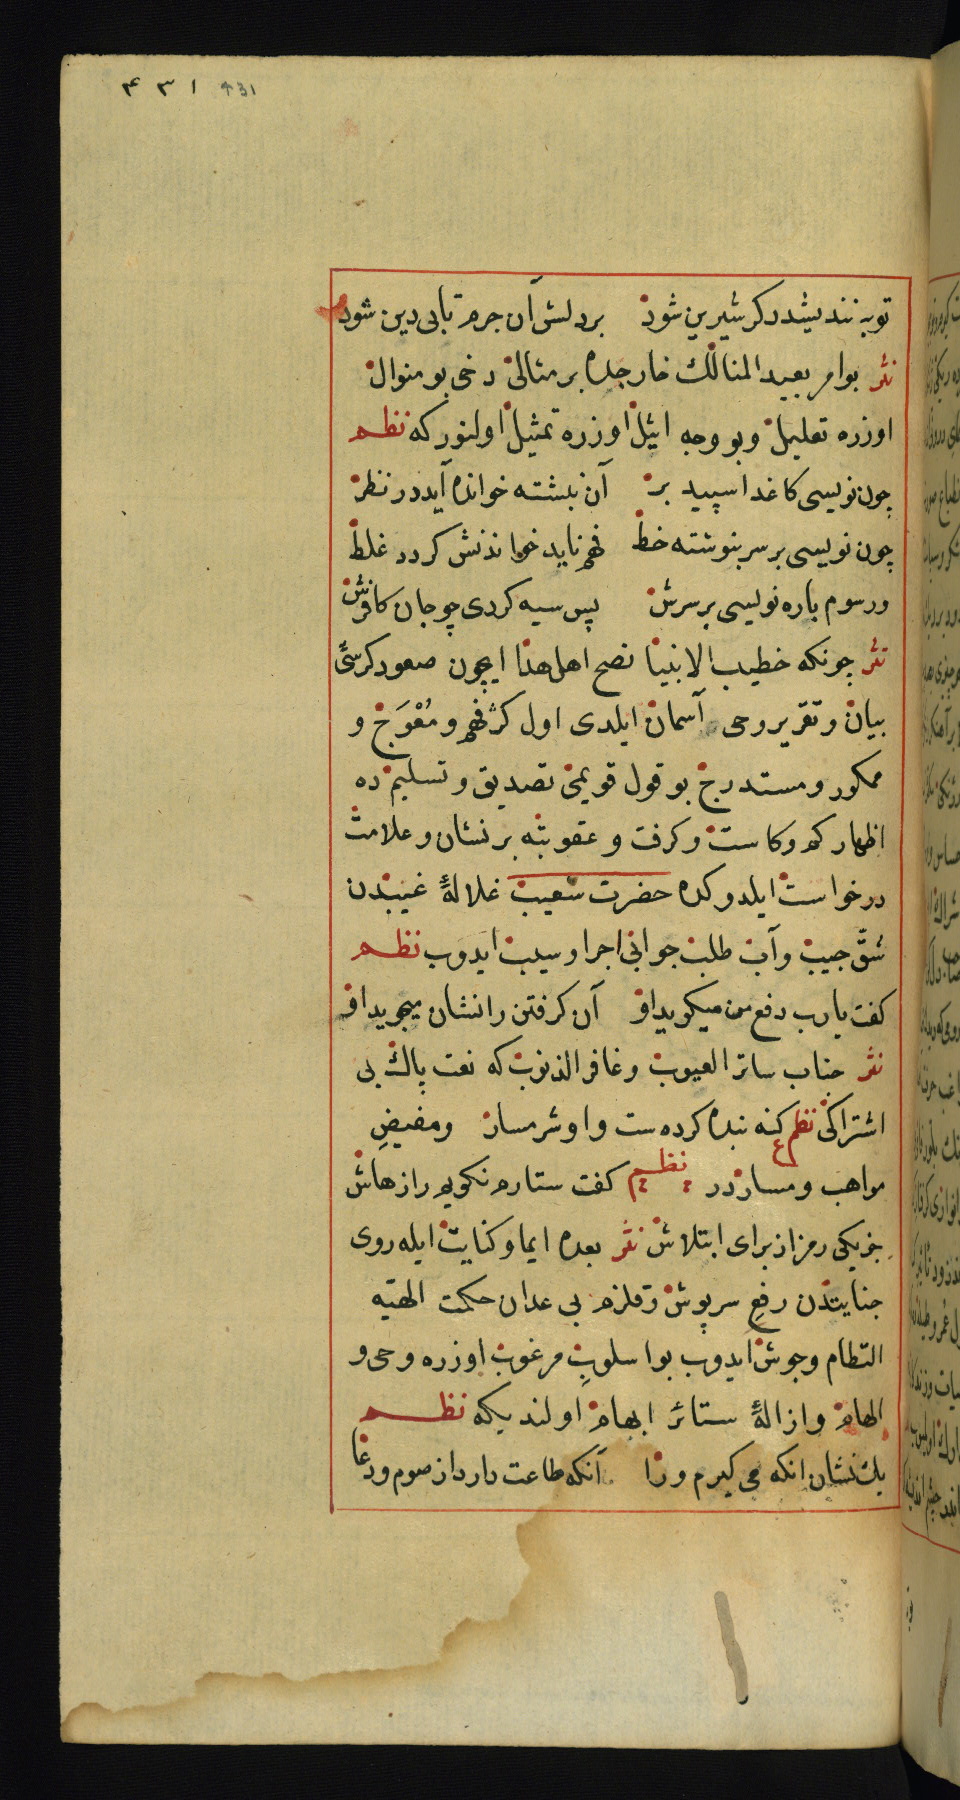 ۴۳۱ 431
توبه نندیشد دکر شیرین شود بر دلش آن جرم تا بی دین شود
نثر بو امر بعید المنالك خارجده بر مثالی دخی بو منوال
اوزره تعلیل و بو وجه ایله اوزره تمثیل اولنور که نظم
چون نویسی کاغد اسپید بر آن نبشته خوانده آید در نظر
چون نویسی بر سر بنوشته خط فهم ناید خواندنش کردد غلط
ور سوم باره نویسی بر سرش پس سیه کردی چو جان کافرش
نثر چونکه خطیب الانبیا نصح اهل هدا ایچون صعود کرسئ
بیان و تقریر وحی آسمان ایلدی اول کژ فهم و مُعْوَج و
ممکور و مستدرج بو قول قویمی تصدیق و تسلیم ده
اظهار کم و کاست و کرفت و عقوبته بر نشان و علامت
درخواست ایلدوکده حضرت شعیب غلالهٔ غیبدن
شقّ جیب و آن طلب جوابی اجرا و سیب ایدوب نظم
کفت یا رب دفع من میکوید او آن کرفتن را نشان میجوید او
نثر جناب ساتر العیوب و غافر الذنوب که نعت پاك بی
اشتراکی نظم ع کنه بنده کرده ست و او شرمسار و مفیضِ
مواهب و مساردر نظم کفت ستارم نکویم رازهاش
جز یکی رمز از برای ابتلاش نثر بعده ایما و کنایت ایله روی
جنایتدن رفع سرپوش و قلزم بی عدان حکمت الهیّه
التطام و جوش ایدوب بو اسلوبِ مرغوب اوزره وحی و
الهام و ازالهٔ ستائر ابهام اولندیکه نظم
یك نشان انکه می کیرم ورا آنکه طاعت دارد از صوم و دعا